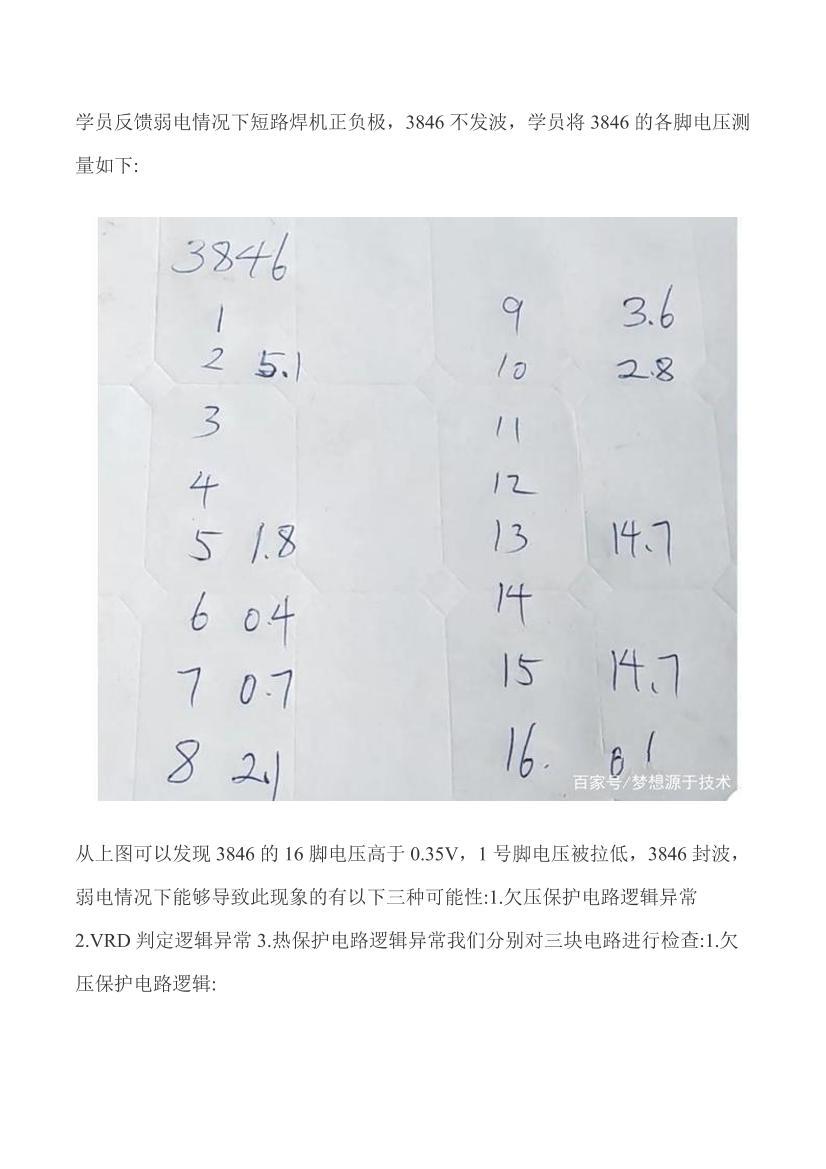 学员反馈弱电情况下短路焊机正负极，3846 不发波，学员将 3846 的各脚电压测
量如下:
3846
1
2 5.1
3
4
5 1.8
6 0.4
7 0.7
8 2.1
9 3.6
10 2.8
11
12
13 14.7
14
15 14.7
16.
百家号/梦想源于技术
从上图可以发现 3846 的 16 脚电压高于 0.35V，1 号脚电压被拉低，3846 封波，
弱电情况下能够导致此现象的有以下三种可能性:1.欠压保护电路逻辑异常
2.VRD 判定逻辑异常 3.热保护电路逻辑异常我们分别对三块电路进行检查:1.欠
压保护电路逻辑: